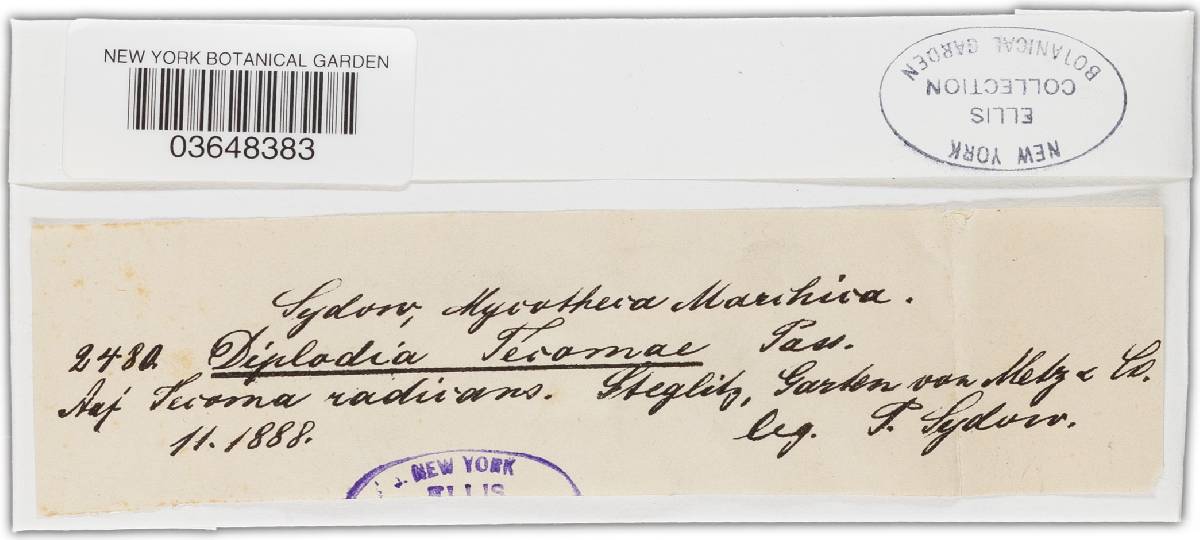 NEW YORK BOTANICAL GARDEN
03648383
NEW YORK
ELLIS
COLLECTION
BOTANICAL GARDEN
Sydow, Mycotheca Marchica.
2480. Diplodia Tecomae Pass.
Auf Tecoma radicans. Steglitz, Garten von Metz & Co.
11. 1888. leg. P. Sydow.
NEW YORK
ELLIS